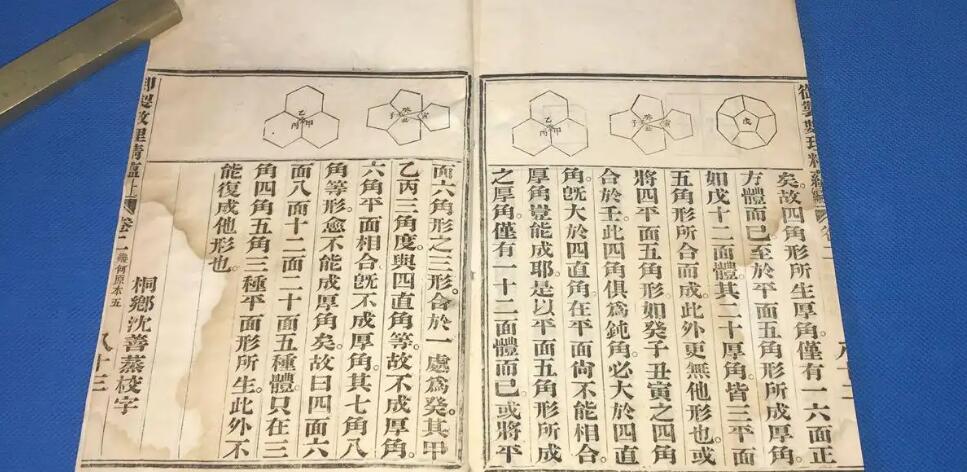 御製數理精蘊
戊
癸
子
寅
丑
乙
甲
丙
矣。故四角形所生厚角。僅有一六面正
方體而已。至於平面五角形所成厚角。
如戊十二面體。其二十厚角。皆三平面
五角形所合而成。此外更無他形也。或
將四平面五角形。如癸子丑寅之四角
合於壬。此四角俱爲鈍角。必大於四直
角。旣大於四直角。在平面尚不能相合。
厚角豈能成耶。是以平面五角形所成
之厚角。僅有一十二面體而已。或將平
癸
子
寅
丑
乙
甲
丙
面六角形之三形。合於一處爲癸。其甲
乙丙三角度。與四直角等。故不成厚角。
六角平面相合。旣不成厚角。其七角八
角等形。愈不能成厚角矣。故曰四面六
面八面十二面二十面五種體。只在三
角四角五角三種平面形所生。此外不
能復成他形也。
桐鄉沈善蒸校字
御製數理精蘊上編卷二幾何原本五 八十三